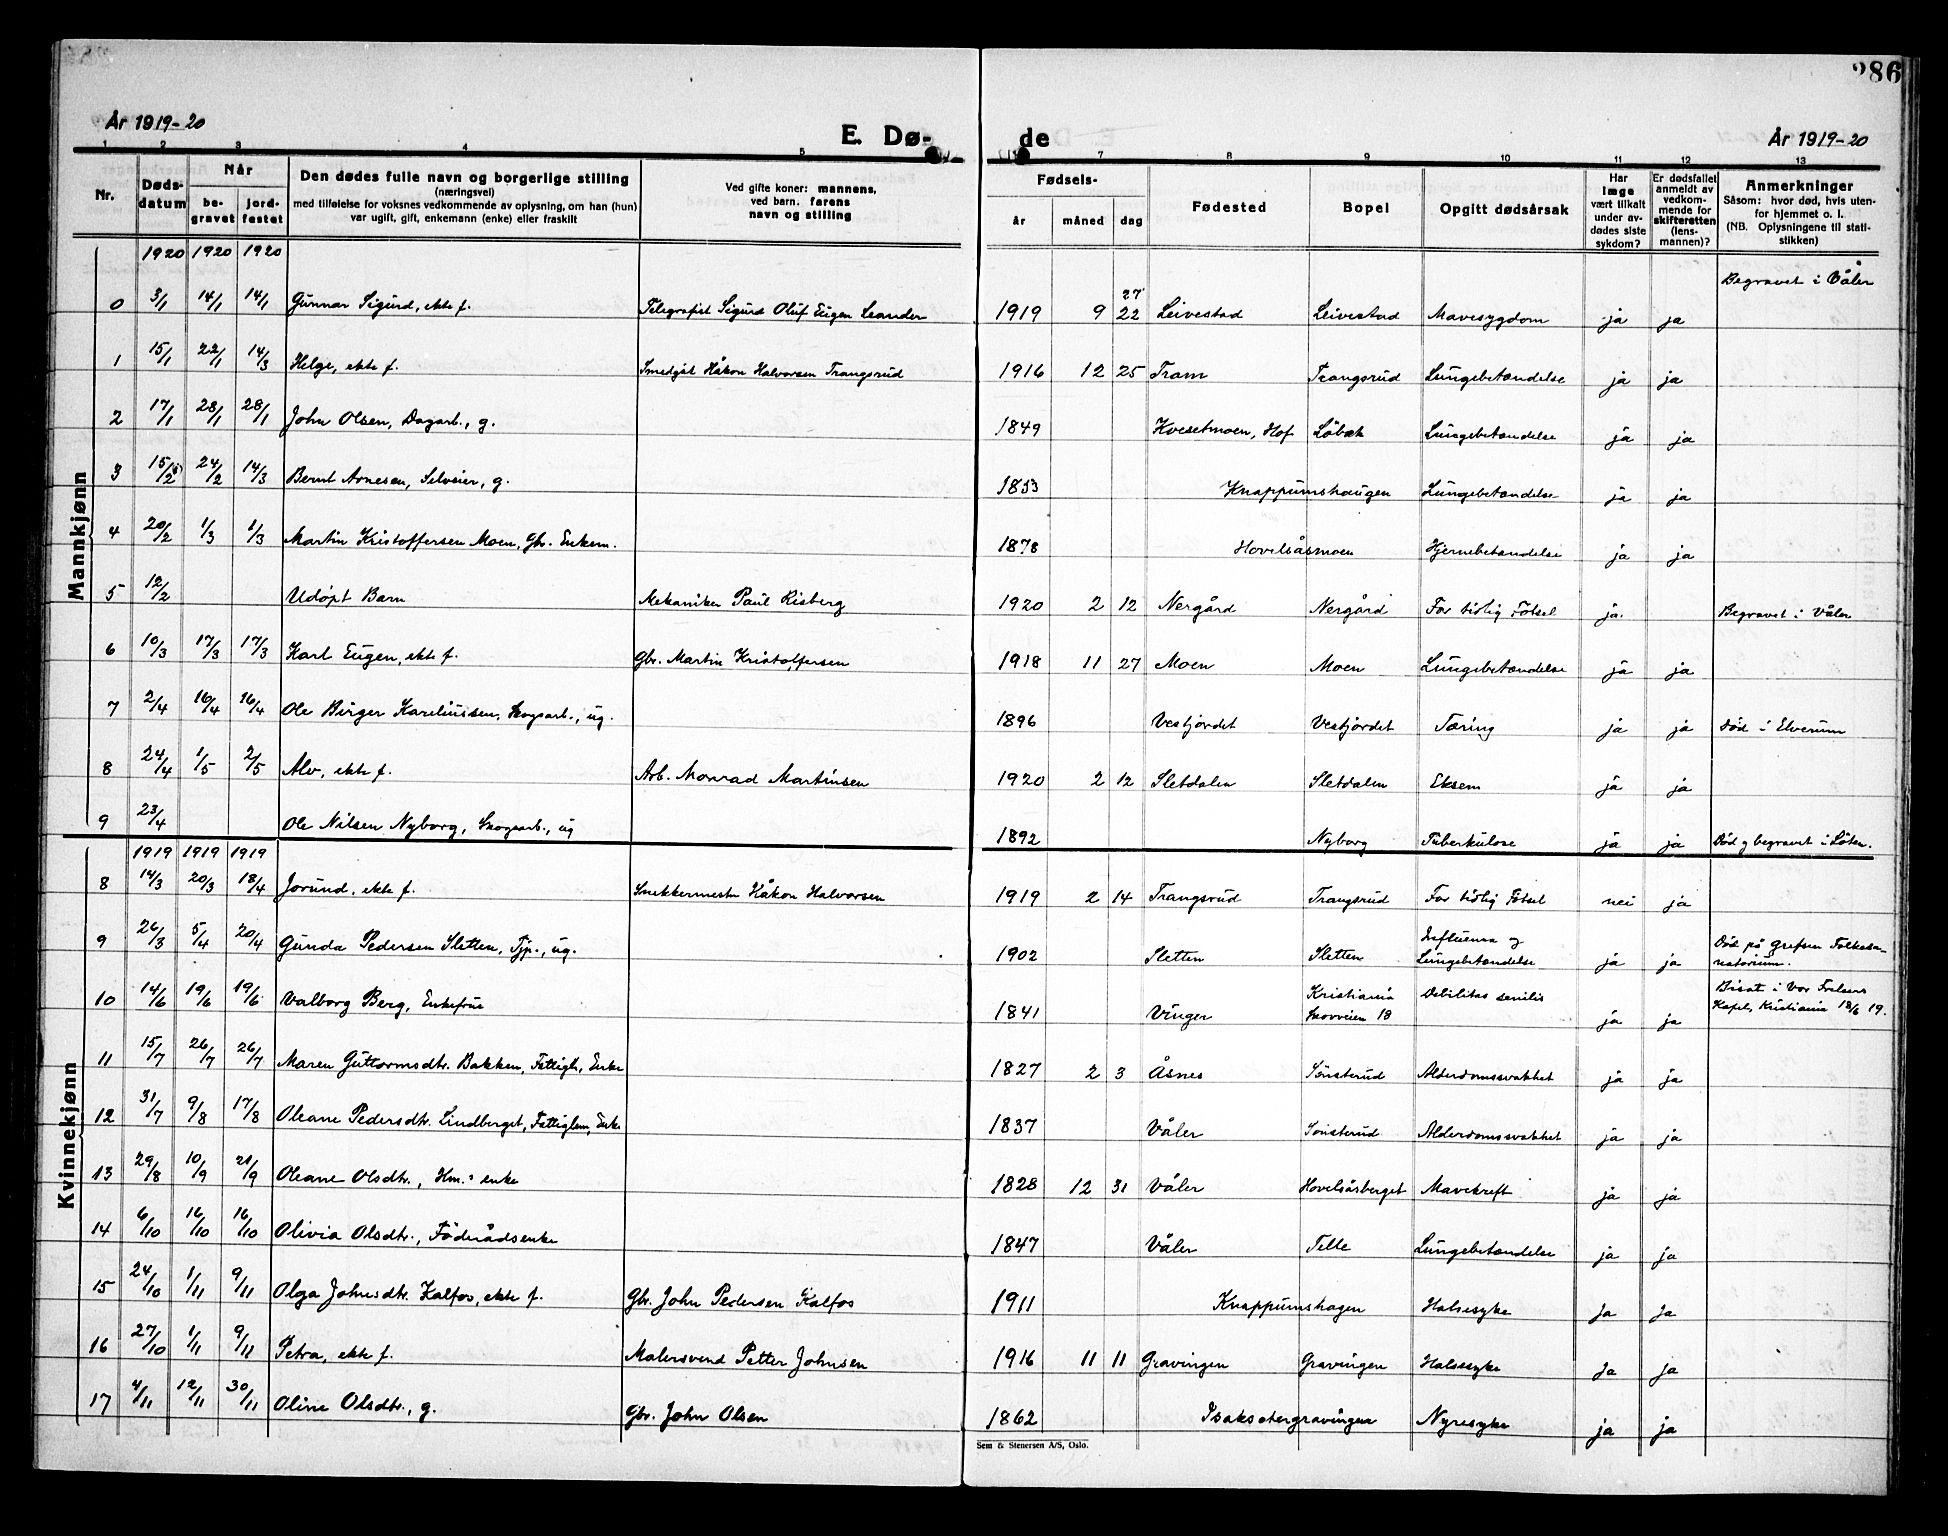 286
År 1919-20
E. Dø-
de
År 1919-20
1 2 3 4 5 7 8 9 10 11 12 13
Nr.
Døds-
datum
Når
be-
gravet
jord-
festet
Den dødes fulle navn og borgerlige stilling
(næringsvei)
med tilføielse for voksnes vedkommende av oplysning, om han (hun)
var ugift, gift, enkemann (enke) eller fraskilt
Ved gifte koner: mannens,
ved barn. farens
navn og stilling
Fødsels-
år måned dag
Fødested
Bopel
Opgitt dødsårsak
Har
læge
vært tilkalt
under av-
dødes siste
sykdom?
Er dødsfallet
anmeldt av
vedkom-
mende for
skifteretten
(lens-
mannen)?
Anmerkninger
Såsom: hvor død, hvis uten-
for hjemmet o. l.
(NB. Oplysningene til stati-
stikken)
Mannkjønn
1920 1920 1920
0 3/1 14/1 14/1 Gunnar Sigurd, ekte f. Telegrafist Sigurd Oluf Eugen Leander 1919 9 27 22 Leivestad Leivestad Mavesygdom ja ja Begravet i Våler
1 15/1 22/1 14/3 Helge, ekte f. Smedgst Håkon Halvorsen Trangsrud 1916 12 25 Tram Trangsrud Lungebetændelse ja ja
2 17/1 28/1 28/1 John Olsen, Dagarb., g. 1849 Kvesetmoen, Hof Löbak Lungebetændelse ja ja
3 15/2 24/2 14/3 Bernt Arnesen, Selveier, g. 1853 Knappumshaugen Lungebetændelse ja ja
4 20/2 1/3 1/3 Martin Kristoffersen Moen, Gbr. Enkem. 1878 Hovelsåsmoen Hjernebetændelse ja ja
5 12/2 Udöpt Barn Mekaniker Paul Risberg 1920 2 12 Nergård Nergård For tidlig Fötsel ja. Begravet i Våler
6 10/3 17/3 17/3 Karl Eugen, ekte f. Gbr. Martin Kristoffersen 1918 11 27 Moen Moen Lungebetændelse ja ja
7 2/4 16/4 16/4 Ole Birger Kareliussen, Skogsarb., ug. 1896 Vestjordet Vestjordet Tæring ja ja död i Elverum
8 24/4 1/5 2/5 Alv, ekte f. Arb. Monrad Martinsen 1920 2 12 Sletdalen Sletdalen Eksem ja ja
9 23/4 Ole Nilsen Nyborg, Skogsarb., ug 1892 Nyborg Tuberkulose ja ja Död og begravet i Löten.
Kvinnekjønn
1919 1919 1919
8 14/3 20/3 18/4 Jorund, ekte f. Snekkermester Håkon Halvorsen 1919 2 14 Trangsrud Trangsrud For tidlig Fötsel nei ja
9 26/3 5/4 20/4 Gunda Pedersen Sletten, Tjp., ug. 1902 Sletten Sletten Influensa og
Lungebetændelse ja ja Död på Grefsen Folkesa-
natorium.
10 14/6 19/6 19/6 Valborg Berg, Enkefrue 1841 Vinger Kristiania
Skovveien 18 Debilitas senilis ja ja Bisat i Vor Frelsers
Kapel, Kristiania 18/6 19.
11 15/7 26/7 26/7 Maren Guttormsdtr. Bakken, Fattigl., Enke 1827 2 3 Åsnes Sönsterud Alderdomssvakhet ja ja
12 31/7 9/8 17/8 Oleane Pedersdtr. Lindberget, Fattiglem, Enke 1837 Våler Sönsterud Alderdomssvakhet ja ja
13 29/8 10/9 21/9 Oleane Olsdtr., Hm.s enke 1828 12 31 Våler Hovelsåsberget Mavekreft ja ja
14 6/10 16/10 16/10 Olivia Olsdtr., Föderådsenke 1847 Våler Telle Lungebetændelse ja ja
15 24/10 1/11 9/11 Olga Johnsdtr. Kalfos, ekte f. Gbr. John Pedersen Kalfos 1911 Knappumshagen Halsesyke ja ja
16 27/10 1/11 9/11 Petra, ekte f. Malersvend Petter Johnsen 1916 11 11 Gravingen Gravingen Halsesyke ja ja
17 4/11 12/11 30/11 Oline Olsdtr., g. Gbr. John Olsen 1862 Isaksætergravingen Nyresyke ja ja
Sem & Stenersen A/S, Oslo.